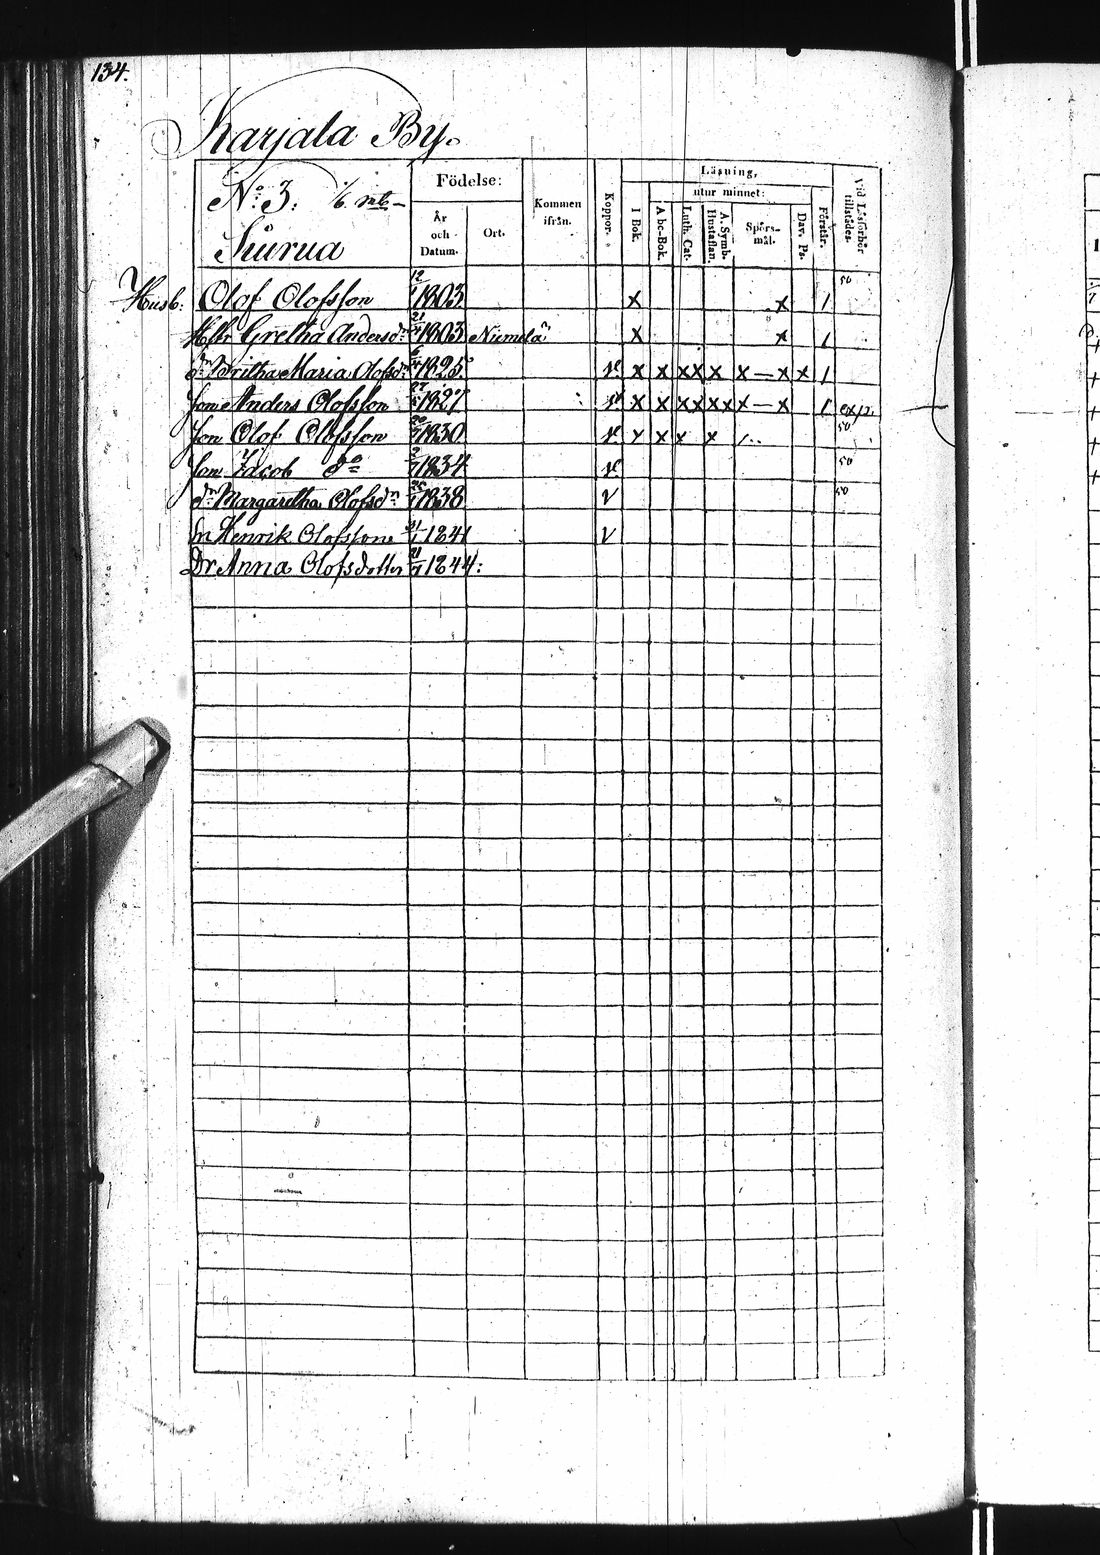 134.
Karjala By.
No. 3. 1/6 mtl
Siurua
Födelse:
År och Datum.
Ort.
Kommen ifrån.
Koppor.
Läsning,
utur minnet:
I Bok.
Abc-Bok.
Luth. Cat.
A. Symb. Hustaflan.
Spörs-mål.
Dav. Ps.
Förstår.
Vid Läsförhör tillstädes.
Husb. Olof Olofsson 12 1803 x x 1 50
Hstr Gretha Andersdr 21/4 1803 Niemelä x x 1
dr Britha Maria Olofsdr 1825 v x x xx x x — x x 1
Son Anders Olofsson 1827 v x x xx xx x — x 1
Son Olof Olofsson 1830 v x x x x 50
Son Jacob do 1834 v 50
dr Margaretha Olofsdr 1838 v 50
Sn Henrik Olofsson 31/1 1841 v
Dr Anna Olofsdotter 1844: